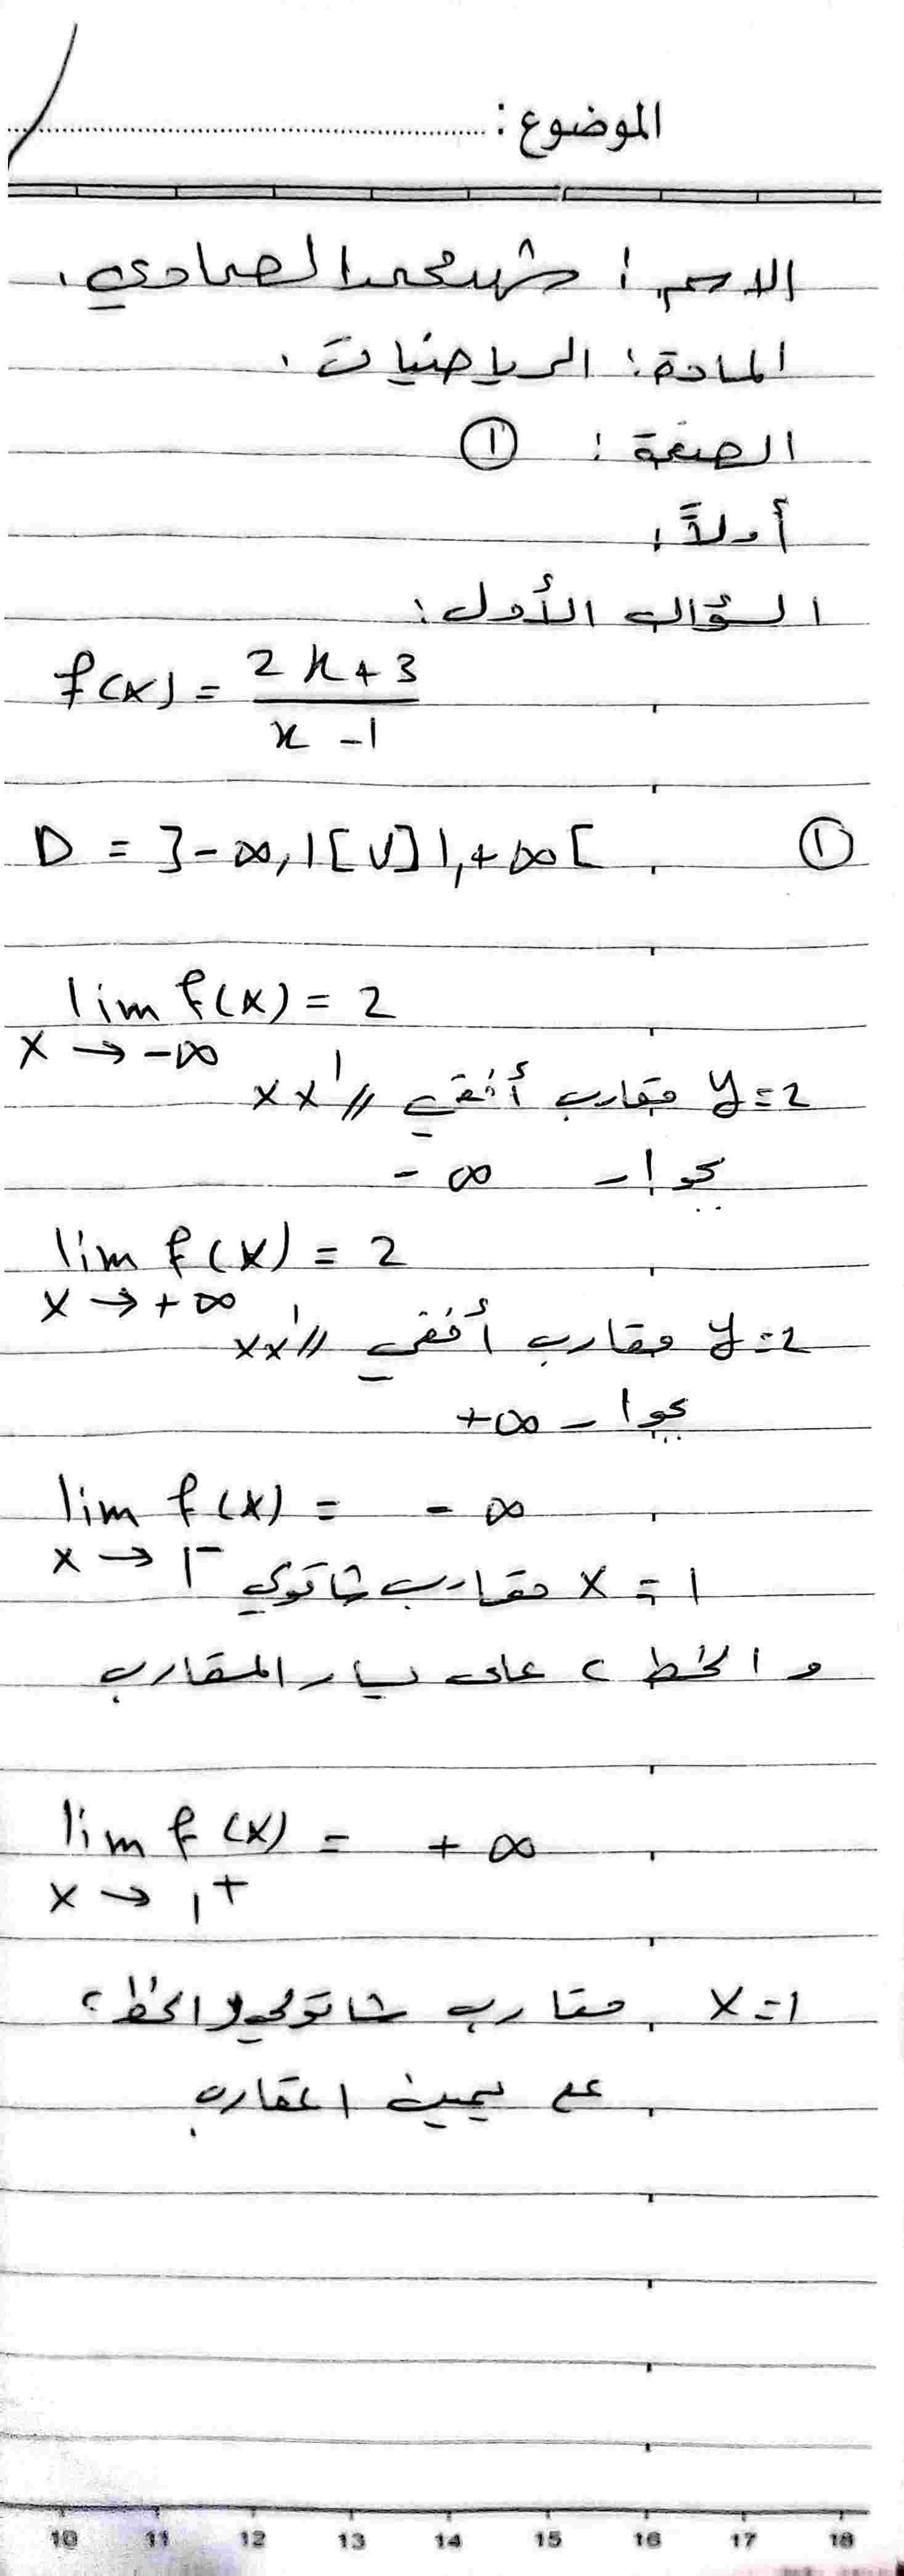 الموضوع :
الاسم : شهد محمد الصمادي .
المادة : الرياضيات .
الصفحة : ①
أولاً :
السؤال الأول :
f(x) = \frac{2x+3}{x-1}
① D = ]-∞, 1[ U ]1, +∞[
lim f(x) = 2
x → -∞
y = 2 مقارب أفقي // xx'
بجوار -∞
lim f(x) = 2
x → +∞
y = 2 مقارب أفقي // xx'
بجوار +∞
lim f(x) = -∞
x → 1⁻
x = 1 مقارب شاقولي
و الخط c على يسار المقارب
lim f(x) = +∞
x → 1⁺
x = 1 مقارب شاقولي و الخط c
على يمين المقارب
10 11 12 13 14 15 16 17 18